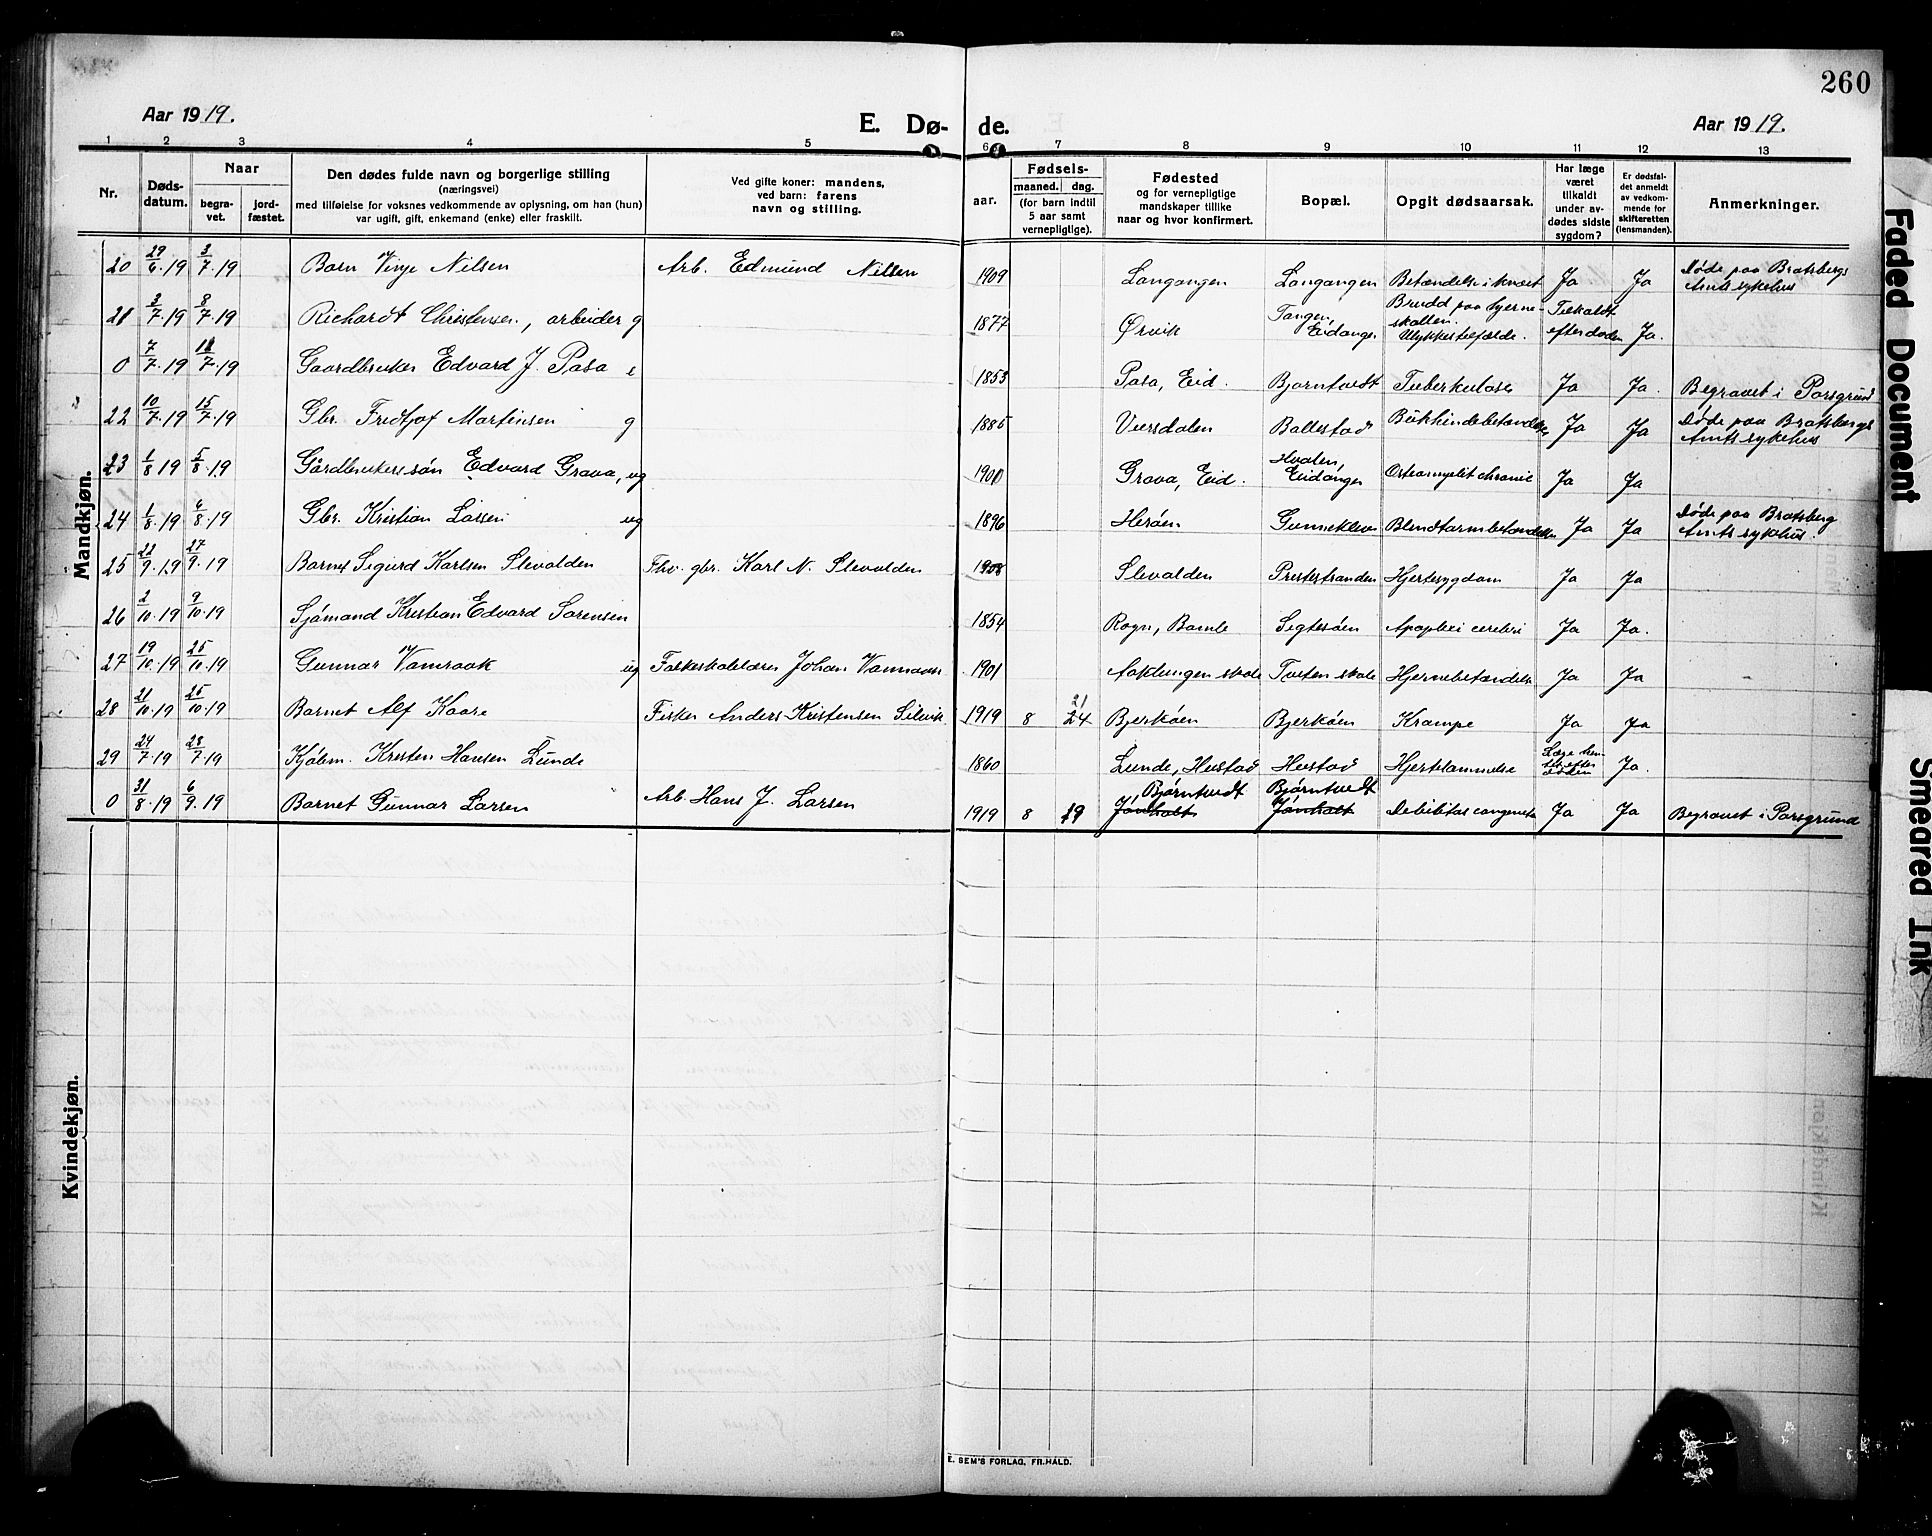 260
Aar 1919.
E. Dø- de.
Aar 1919.
1 2 3 4 5 6 7 8 9 10 11 12 13
Nr.
Døds-
datum.
Naar
begra-
vet.
jord-
fæstet.
Den dødes fulde navn og borgerlige stilling
(næringsvei)
med tilføielse for voksnes vedkommende av oplysning, om han (hun)
var ugift, gift, enkemand (enke) eller fraskilt.
Ved gifte koner: mandens,
ved barn: farens
navn og stilling.
aar.
Fødsels-
maaned. dag.
(for barn indtil
5 aar samt
vernepligtige).
Fødested
og for vernepligtige
mandskaper tillike
naar og hvor konfirmert.
Bopæl.
Opgit dødsaarsak.
Har læge
været
tilkaldt
under av-
dødes sidste
sygdom?
Er dødsfal-
det anmeldt
av vedkom-
mende for
skifteretten
(lensmanden).
Anmerkninger.
Mandkjøn.
20 29/6.19 3/7.19 Barn Vinje Nilsen Arb. Edmund Nilsen 1909 Langangen Langangen Betændelse i knæet Ja Ja Døde paa Bratsberg Amts sykehus
21 3/7.19 8/7.19 Richardt Christensen, arbeider g 1877 Ørvik Tangen, Eidanger Brudd paa hjerneskallen. Ulykkestilfælde. Tilkaldt efter døden Ja.
0 7/7.19 11/7.19 Gaardbruker Edvard J. Pasa e 1853 Pasa, Eid. Bjørntvedt Tuberkulose Ja Ja. Begravet i Porsgrund
22 10/7.19 15/7.19 Gbr. Fredtjof Martinsen g 1885 Versdalen Ballestad Bukhindebetændelse Ja Ja Døde paa Bratsbergs Amts sykehus
23 1/8 19 5/8.19 Gårdbrukersøn Edvard Grava, ug 1900 Grava, Eid. Hvalen, Eidanger Osteomyelit chronic Ja Ja
24 1/8.19 6/8.19 Gbr. Kristian Larsen ug 1896 Herøen Gunneklev Blindtarmbetændelse Ja Ja Døde paa Bratsberg Amts sykehus.
25 22/9.19 27/9.19 Barnet Sigurd Karlsen Slevolden Fhv. gbr. Karl N. Slevolden 1908 Slevolden Prestestranden Hjertesygdom Ja Ja
26 2/10.19 9/10.19 Sjømand Kristian Edvard Sørensen 1854 Rogn, Bamle Sigtesøen Apoplexi cerebri Ja Ja.
27 19/10.19 25/10.19 Gunnar Vamraak ug Folkeskolelærer Johan Vamraak 1901 Aaklungen skole Tveten skole Hjernebetændelse Ja Ja
28 21/10.19 25/10.19 Barnet Alf Kaare Fisker Anders Kristensen Silvik 1919 8 21 24 Bjerkøen Bjerkøen Krampe Ja Ja
29 24/7.19 28/7.19 Kjøbm. Kristen Hansen Lunde 1860 Lunde, Heistad Heistad Hjertelammelse Læge hentet efter døden Ja.
0 31/8.19 6/9.19 Barnet Gunnar Larsen Arb. Hans J. Larsen 1919 8 29 Bjørntvedt Jønholt Bjørntvedt Jønholt Debilitas congenita Ja Ja Begravet i Porsgrund
Kvindekjøn.
E. SEM'S FORLAG, FR.HALD.
Faded Document
Smeared Ink